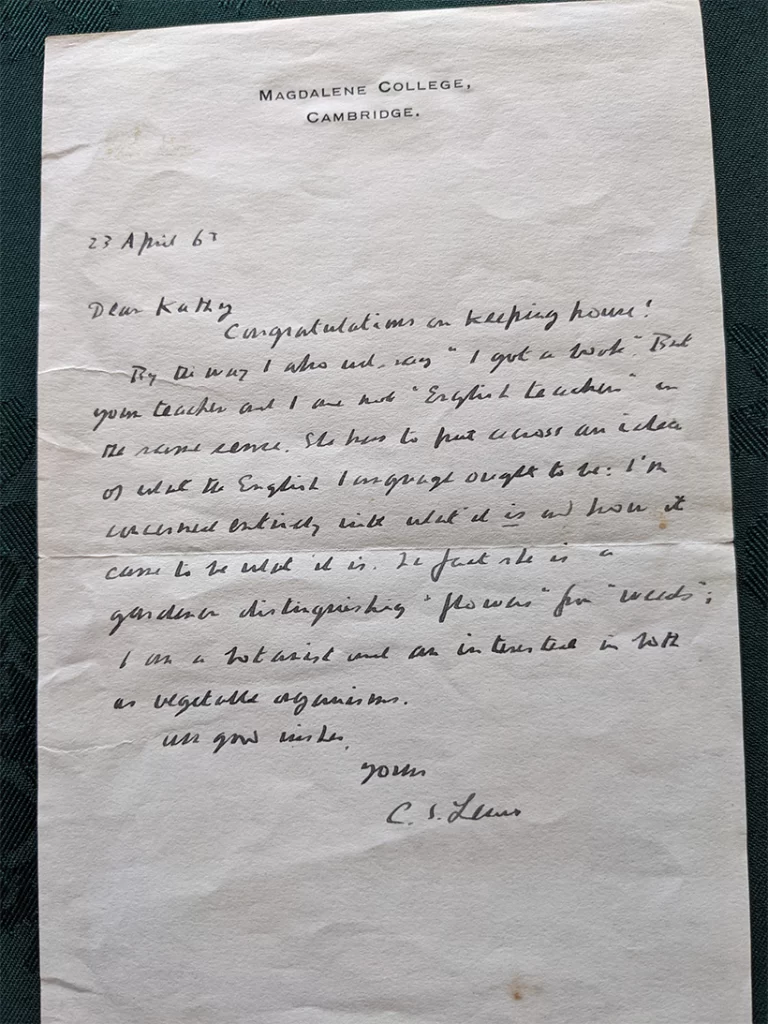 MAGDALENE COLLEGE,
CAMBRIDGE.
23 April 63
Dear Kathy
Congratulations on keeping house!
By the way I also wd. say "I got a book". But
your teacher and I are not "English teachers" in
the same sense. She has to put across an idea
of what the English language ought to be: I'm
concerned entirely with what it is and how it
came to be what it is. In fact she is a
gardener distinguishing "flowers" from "weeds";
I am a botanist and am interested in both
as vegetable organisms.
All good wishes.
yours
C. S. Lewis